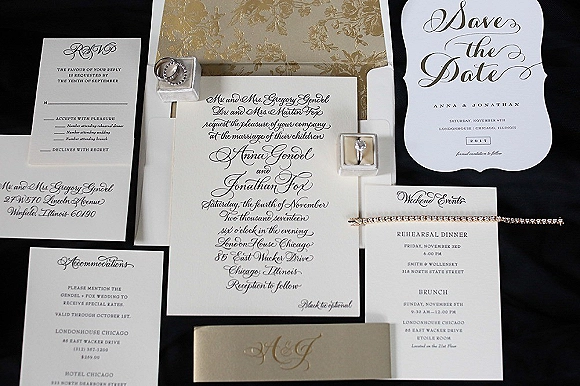 RSVP
THE FAVOUR OF YOUR REPLY
IS REQUESTED BY
THE TENTH OF SEPTEMBER
M
ACCEPTS WITH PLEASURE
DECLINES WITH REGRET
Mr. and Mrs. Gregory Gendel
27W570 Lincoln Avenue
Winfield, Illinois 60190
Accommodations
PLEASE MENTION THE
GENDEL + FOX WEDDING TO
RECEIVE SPECIAL RATES.
VALID THROUGH OCTOBER 1ST.
LONDONHOUSE CHICAGO
85 EAST WACKER DRIVE
(312) 357-1200
$259.00
HOTEL CHICAGO
333 NORTH DEARBORN STREET
Mr. and Mrs. Gregory Gendel
Dr. and Mrs. Martin Fox
request the pleasure of your company
at the marriage of their children
Anna Gendel
and
Jonathan Fox
Saturday, the fourth of November
Two thousand seventeen
six o'clock in the evening
LondonHouse Chicago
85 East Wacker Drive
Chicago, Illinois
Reception to follow
Black tie optional
A&J
Save
the
Date
ANNA & JONATHAN
SATURDAY, NOVEMBER 4TH
LONDONHOUSE | CHICAGO, ILLINOIS
2017
formal invitation to follow
Weekend Events
REHEARSAL DINNER
FRIDAY, NOVEMBER 3RD
SMITH & WOLLENSKY
318 NORTH STATE STREET
BRUNCH
SUNDAY, NOVEMBER 5TH
LONDONHOUSE CHICAGO
85 EAST WACKER DRIVE
ETOILE ROOM
Located on the 21st Floor